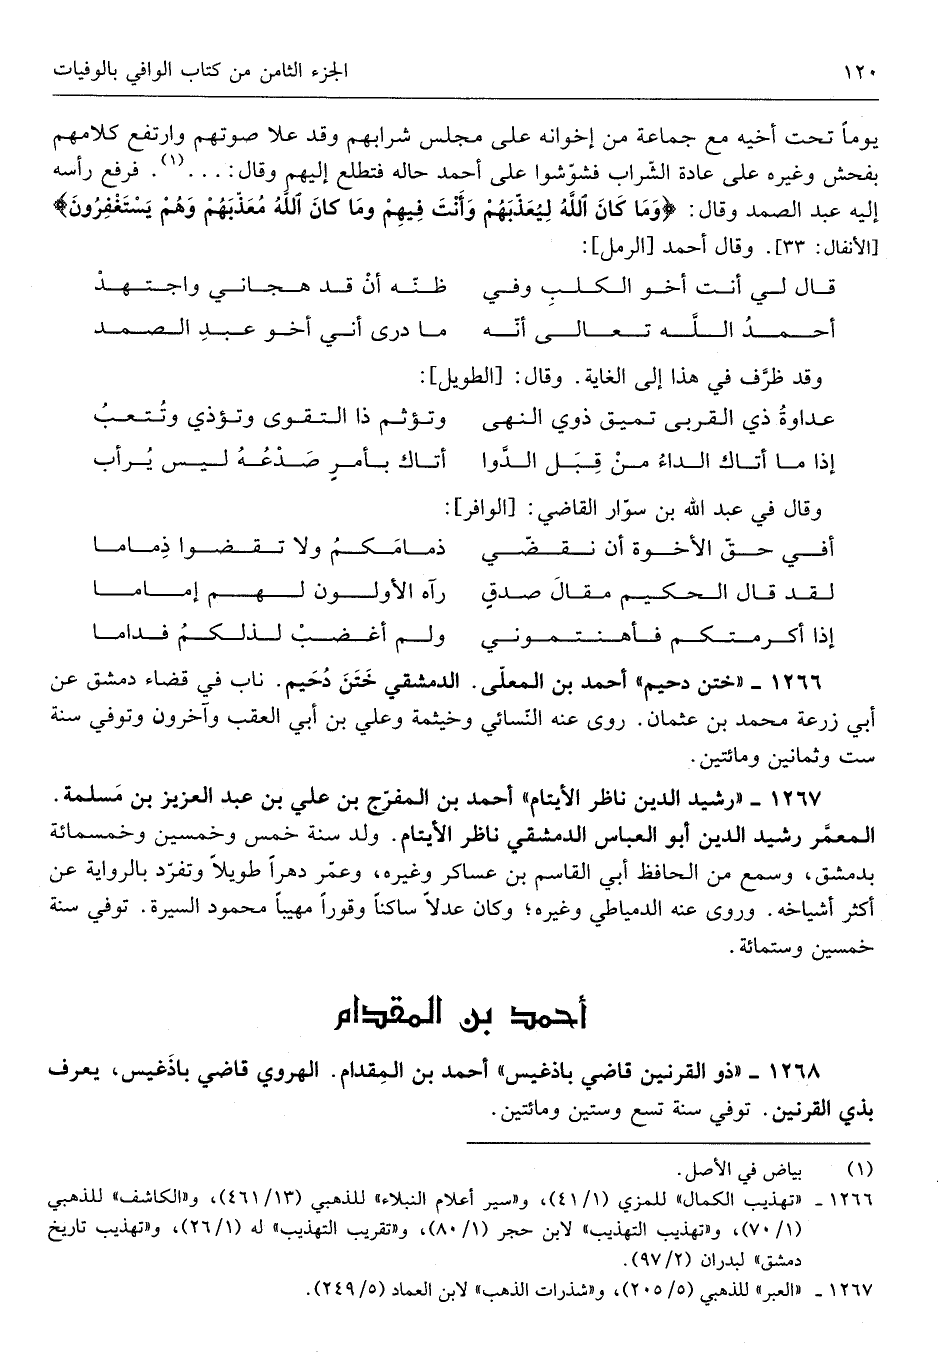 ١٢٠ الجزء الثامن من كتاب الوافي بالوفيات
يوماً تحت أخيه مع جماعة من إخوانه على مجلس شرابهم وقد علا صوتهم وارتفع كلامهم
بفحش وغيره على عادة الشّراب فشوّشوا على أحمد حاله فتطلع إليهم وقال: . . .(١). فرفع رأسه
إليه عبد الصمد وقال: ﴿وَمَا كَانَ ٱللَّهُ لِيُعَذّبَهُمْ وَأَنْتَ فِيهِمْ ومَا كانَ ٱللَّهُ مُعَذّبَهُمْ وَهُمْ يَسْتَغْفِرُونَ﴾
[الأنفال: ٣٣]. وقال أحمد [الرمل]:
قال لي أنت أخو الكلبِ وفي ظنّه أنْ قد هجاني واجتهدْ
أحمدُ اللَّه تعالى أنّه ما درى أني أخو عبدِ الصمد
وقد ظرَّف في هذا إلى الغاية. وقال: [الطويل]:
عداوةُ ذي القربى تميق ذوي النهى وتؤثم ذا التقوى وتؤذي وتُتعبُ
إذا ما أتاك الداءُ منْ قِبَل الدَّوا أتاك بأمرٍ صَدْعُهُ ليس يُرأب
وقال في عبد الله بن سوّار القاضي: [الوافر]:
أفي حقّ الأخوة أن نقضّي ذمامَكمُ ولا تقضوا ذِماما
لقد قال الحكيم مقالَ صدقٍ رآه الأولون لهم إماما
إذا أكرمتكم فأهنتموني ولم أغضبْ لذلكمُ فذاما
١٢٦٦ ـ «ختن دحيم» أحمد بن المعلّى. الدمشقي خَتَنَ دُحَيم. ناب في قضاء دمشق عن
أبي زرعة محمد بن عثمان. روى عنه النّسائي وخيثمة وعلي بن أبي العقب وآخرون وتوفي سنة
ست وثمانين ومائتين.
١٢٦٧ ـ «رشيد الدين ناظر الأيتام» أحمد بن المفرّج بن علي بن عبد العزيز بن مَسلمة.
المعمَّر رشيد الدين أبو العباس الدمشقي ناظر الأيتام. ولد سنة خمس وخمسين وخمسمائة
بدمشق، وسمع من الحافظ أبي القاسم بن عساكر وغيره، وعمّر دهراً طويلاً وتفرّد بالرواية عن
أكثر أشياخه. وروى عنه الدمياطي وغيره؛ وكان عدلاً ساكناً وقوراً مهيباً محمود السيرة. توفي سنة
خمسين وستمائة.
أحمد بن المقدام
١٢٦٨ ـ «ذو القرنين قاضي باذغيس» أحمد بن المِقدام. الهروي قاضي باذَغيس، يعرف
بذي القرنين. توفي سنة تسع وستين ومائتين.
(١) بياض في الأصل.
١٢٦٦ ـ «تهذيب الكمال» للمزي (٤١/١)، و«سير أعلام النبلاء» للذهبي (٤٦١/١٣)، و«الكاشف» للذهبي
(٧٠/١)، و«تهذيب التهذيب» لابن حجر (٨٠/١)، و«تقريب التهذيب» له (٢٦/١)، و«تهذيب تاريخ
دمشق» لبدران (٩٧/٢).
١٢٦٧ ـ «العبر» للذهبي (٢٠٥/٥)، و«شذرات الذهب» لابن العماد (٢٤٩/٥).